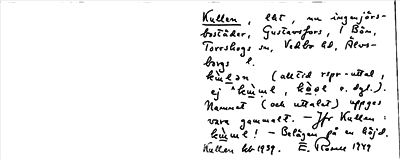 Kullen, lht, nu ingenjörs-
bostäder, Gustavsfors, i Bön,
Torrskogs sn, Vedbo hd, Älvs-
borgs l.
(alltid rspr-uttal,
ej kùml, kòol o. dyl.).
Namnet (och uttalet) uppges
vara gammalt. — Jfr Kullan:
kùml! — Belägen på en höjd.
Kullen kb 1939. E. 1949